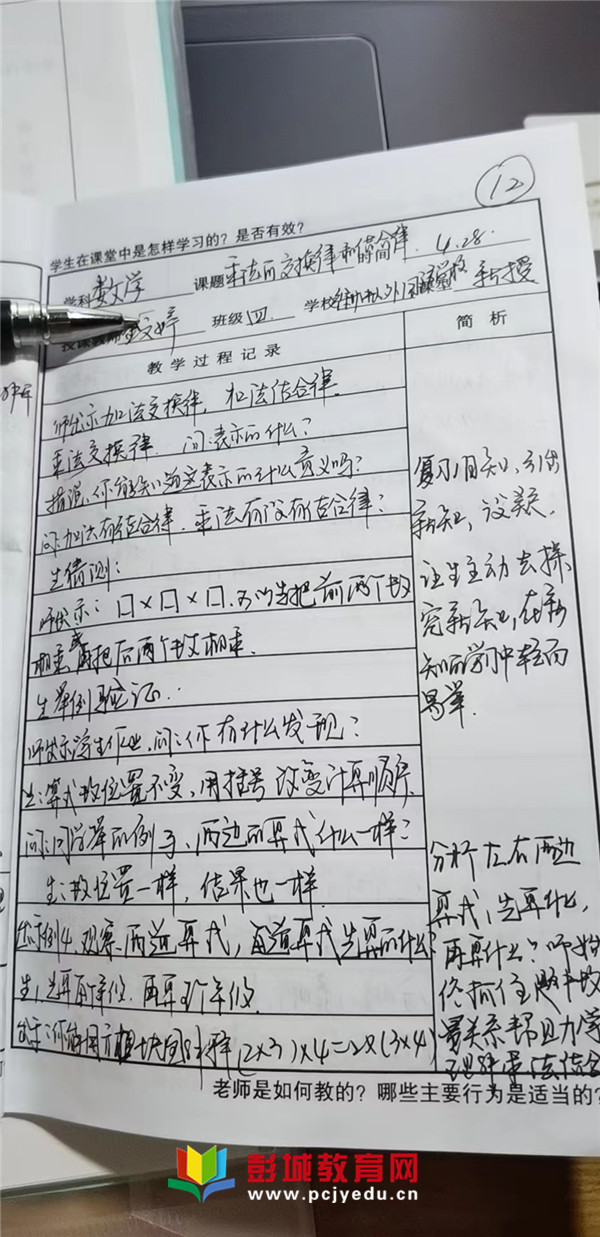 12
学生在课堂中是怎样学习的？是否有效？
学科 数学 课题 乘法的交换律和结合律 的简算 4.28.
授课教师 婷 班级 四 学校 新授
教学过程记录
简析
师出示加法交换律，加法结合律
乘法交换律 问：表示的什么？
你能知道它表示的什么意义吗？
问：加法有结合律，乘法有没有结合律？
生猜测：
师出示：□×□×□，可以先把前两个数
相乘或再把后两个数相乘.
生举例验证..
师出示学生作业，问：你有什么发现？
生：算式数位置不变，用括号改变计算顺序.
问：同学举的例子，两边的算式什么一样？
生：数位置一样，结果也一样.
出示例4，观察两道算式，每道算式先算的什么
生，先算 再算
你能用方 块图 解释(2×3)×4=2×(3×4)
复习旧知，引出
新知，设疑.
让生主动去探
究新知，在新
知的学习中轻而
易举.
分析左右两边
算式，先算什么，
再算什么？师始
终抓住题中数
量关系帮助学
理解乘法结合
老师是如何教的？哪些主要行为是适当的？
彭城教育网
www.pcjyedu.cn